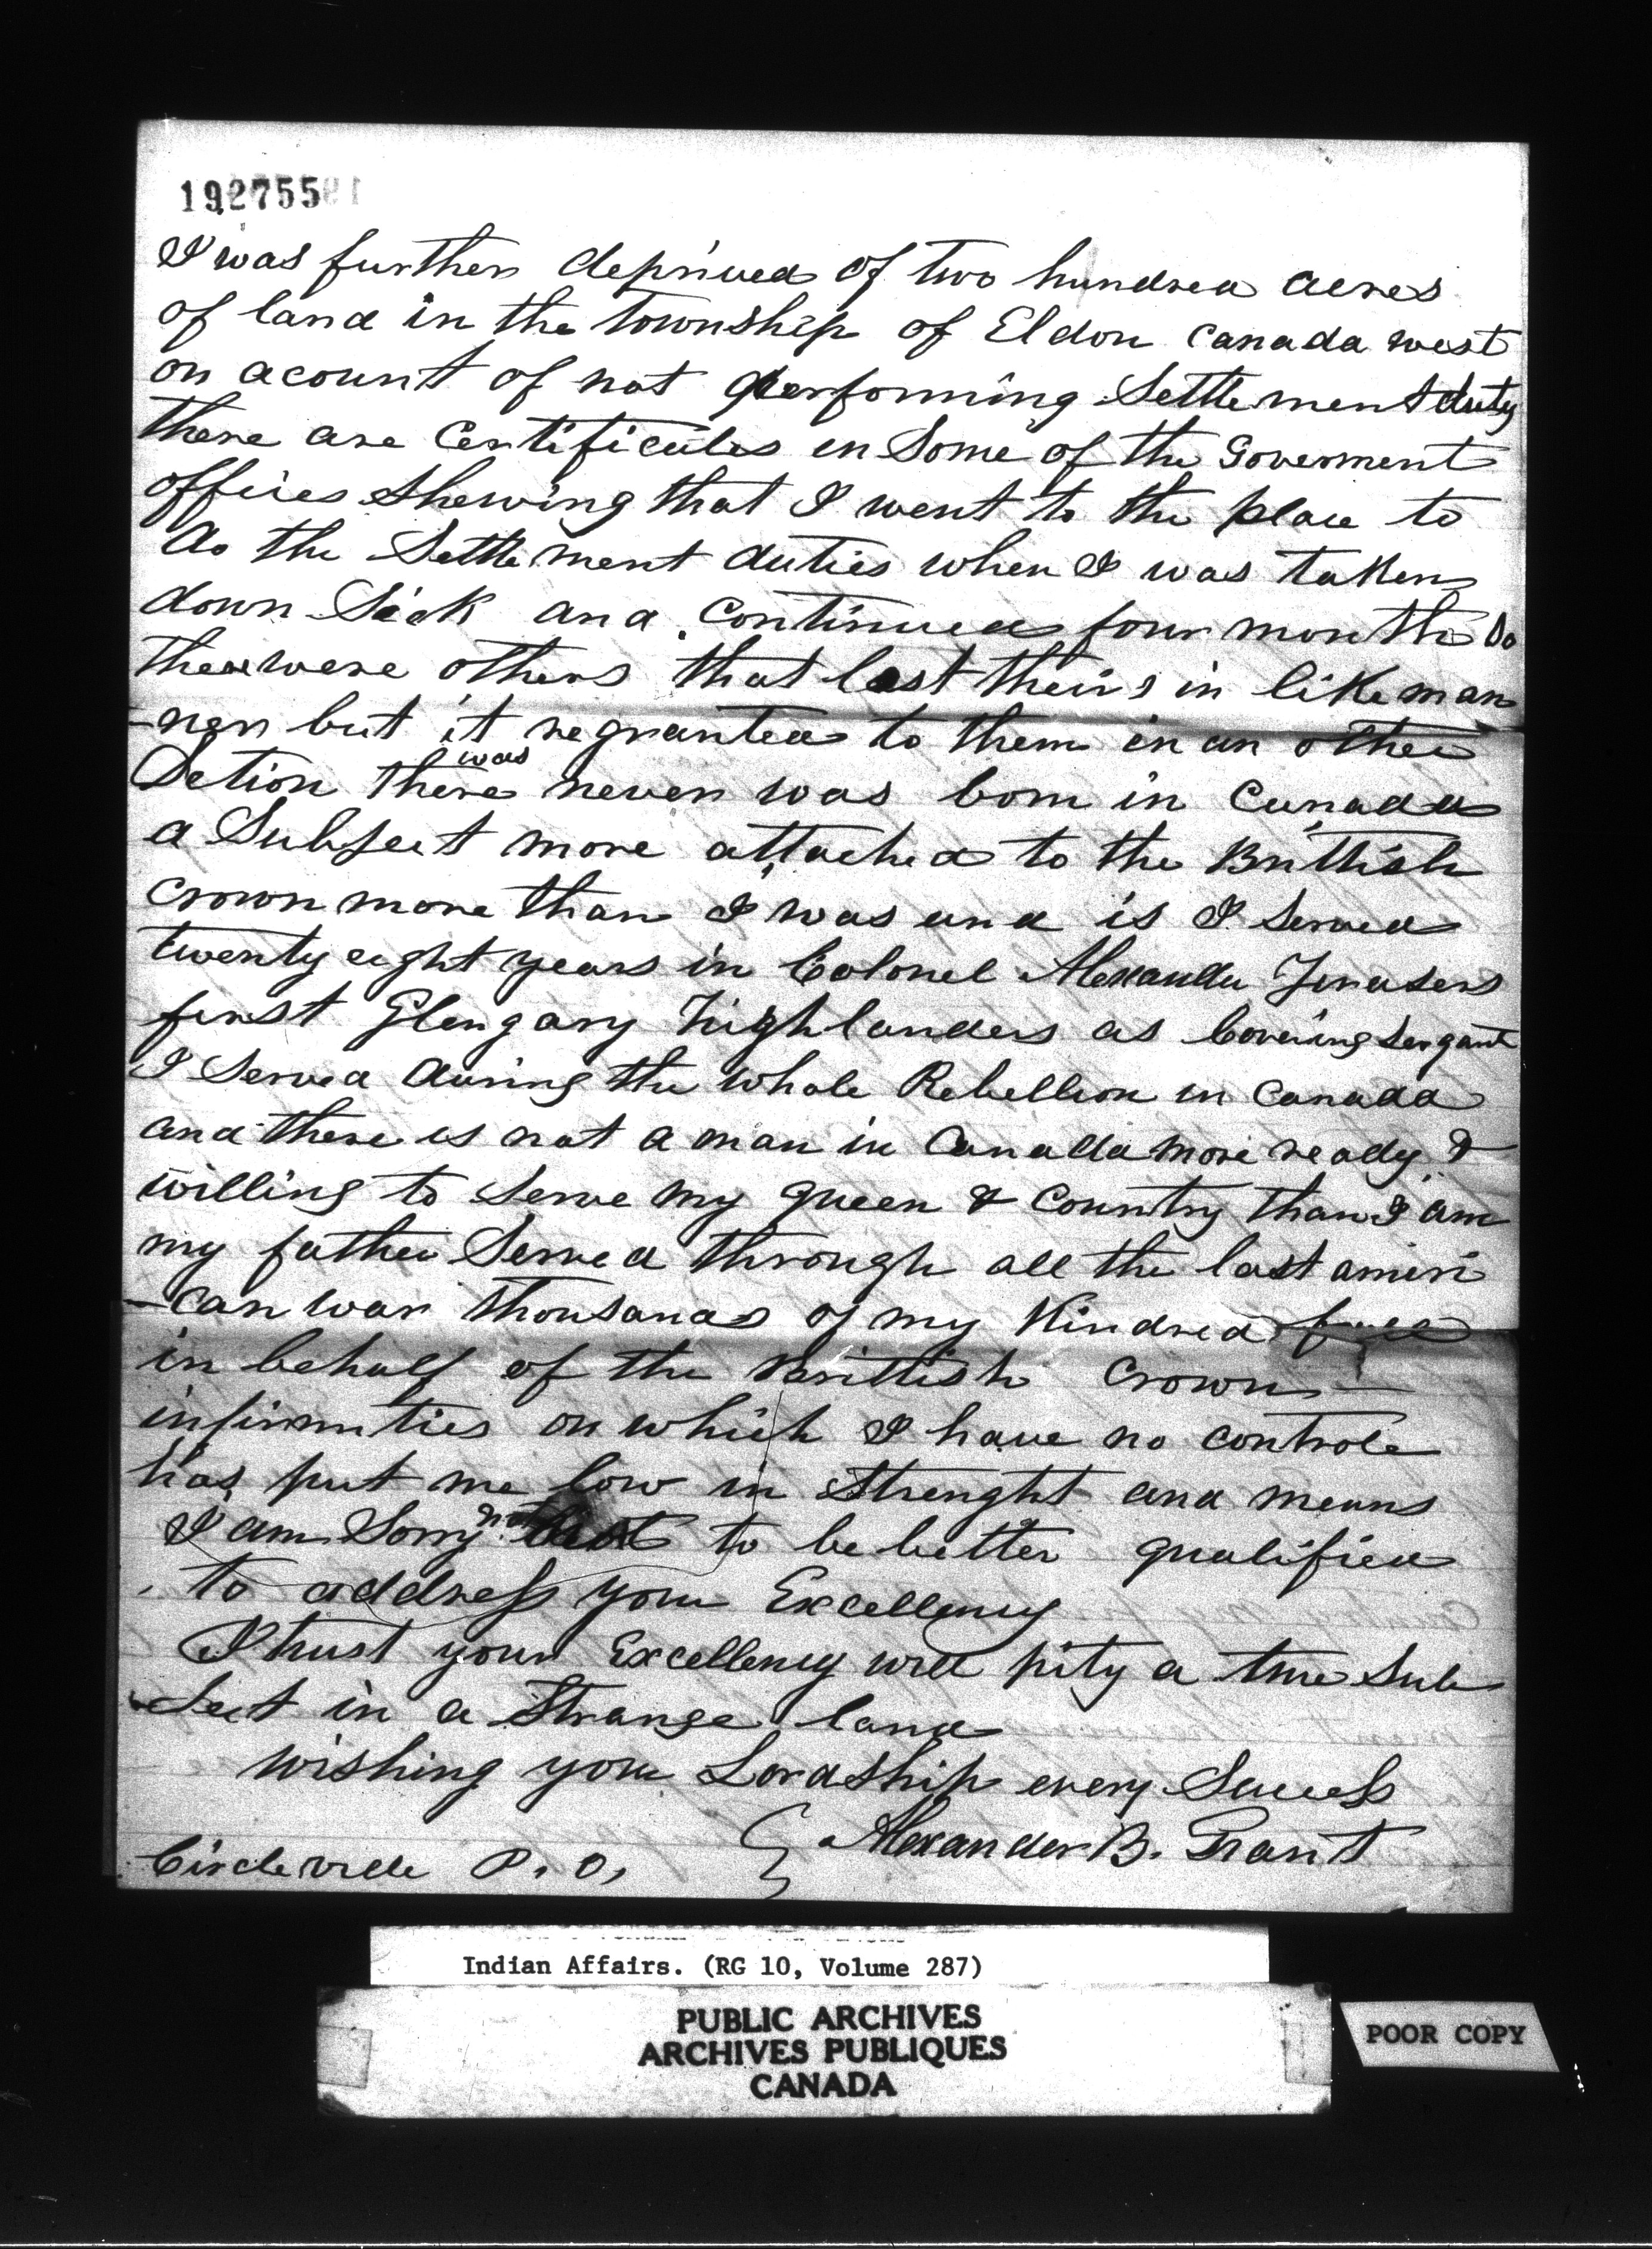 192755
I was further deprived of two hundred acres
of land in the township of Eldon Canada west
on acount of not performing Settlement duty
there are Certificates in Some of the Goverment
offices Shewing that I went to the place to
do the Settlement duties when I was taken
down Sick and Continued four month So
there were others that lost theirs in like man
-ner but it regranted to them in an other
Section there was never was born in Canada
a Subject more attached to the Brittish
Crown more than I was and is I Served
twenty eight years in Colonel Alexander Frasers
first Glengary Highlanders as Covering Sergant
I Served during the whole Rebellion in Canada
and there is not a man in Canada more ready &
willing to Serve my queen & Country than I am
my father Served through all the last ameri
-can war thousands of my Kindred
in behalf of the Brittish Crown
infirmities on which I have no controle
has put me low in Strenght and means
I am Sorry not to be better qualified
to address your Excellency
I trust your Excellency will pity a true Sub
-ject in a Strange land
wishing your Lordship every Success
Alexander B. Grant
Circleville P. O,
Indian Affairs. (RG 10, Volume 287)
PUBLIC ARCHIVES
ARCHIVES PUBLIQUES
CANADA
POOR COPY